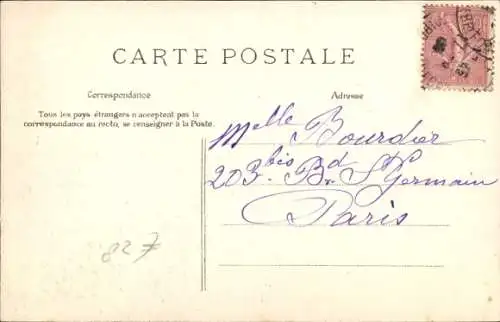 CARTE POSTALE
Correspondance
Adresse
Tous les pays étrangers n'acceptent pas la
correspondance au recto, se renseigner à la Poste.
Melle Bourdier
203bis Bd St Germain
Paris
827